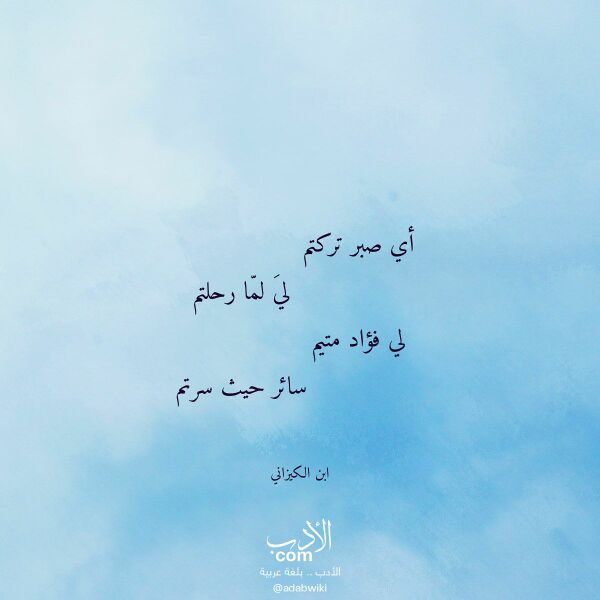 أي صبر تركتم
ليَ لمّا رحلتم
لي فؤاد متيم
سائر حيث سرتم
ابن الكيزاني
الأدب
com
الأدب .. بلغة عربية
@adabwiki